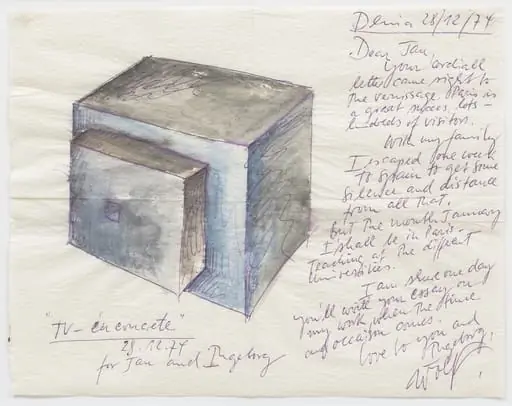 Denia 28/12/74
Dear Jan,
your cordiall
letter came right to
the vernissage. Paris is
a great success, lots –
hundreds of visitors.
With my family
I escaped one week
to Spain to get some
silence and distance
from all that.
But the month January
I shall be in Paris –
teaching at the different
universities.
I am shure one day
you'll write your essay on
my work, when the time
and occasion comes.
Love to you and
Ingeborg,
Wolf
"TV – en concrete"
28.12.74
for Jan and Ingeborg